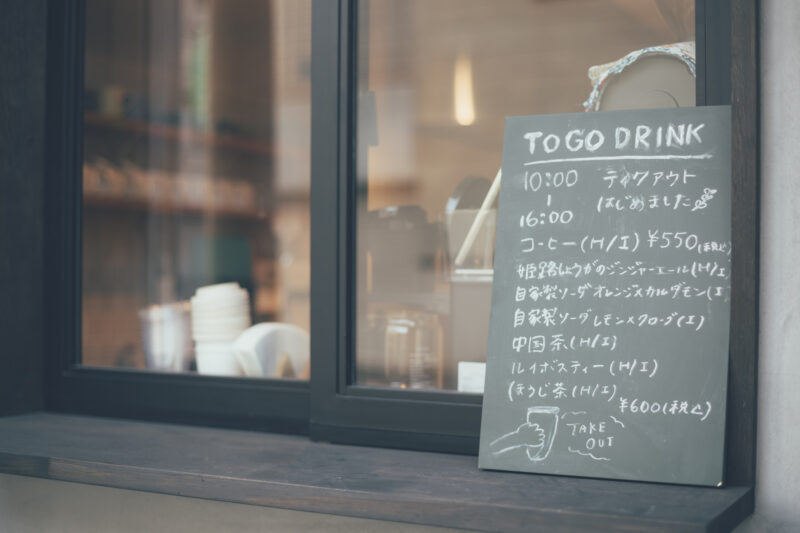 TO GO DRINK
10:00
|
16:00
テイクアウト
はじめました
コーヒー(H/I) ¥550(税込)
姫路しょうがのジンジャーエール(H/I)
自家製ソーダオレンジ×カルダモン(I
自家製ソーダレモン×クローブ(I)
中国茶(H/I)
ルイボスティー(H/I)
ほうじ茶(H/I)
¥600(税込)
TAKE
OUT